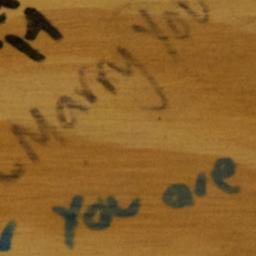 Marry You
You are